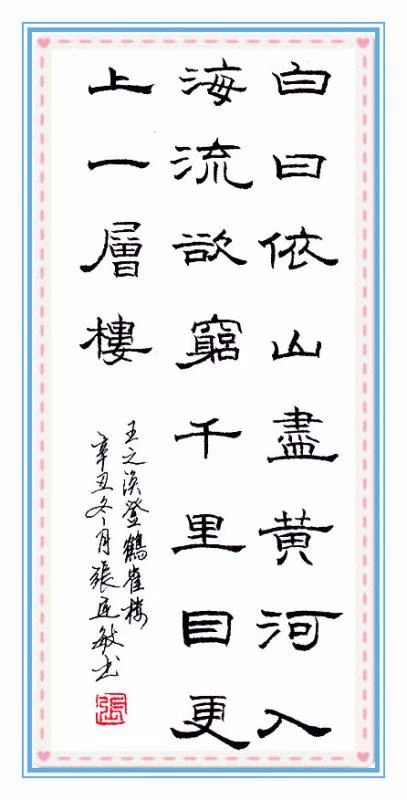 白日依山盡黄河入
海流欲窮千里目更
上一層樓
王之涣登鶴雀楼
辛丑冬月張延敏书
張